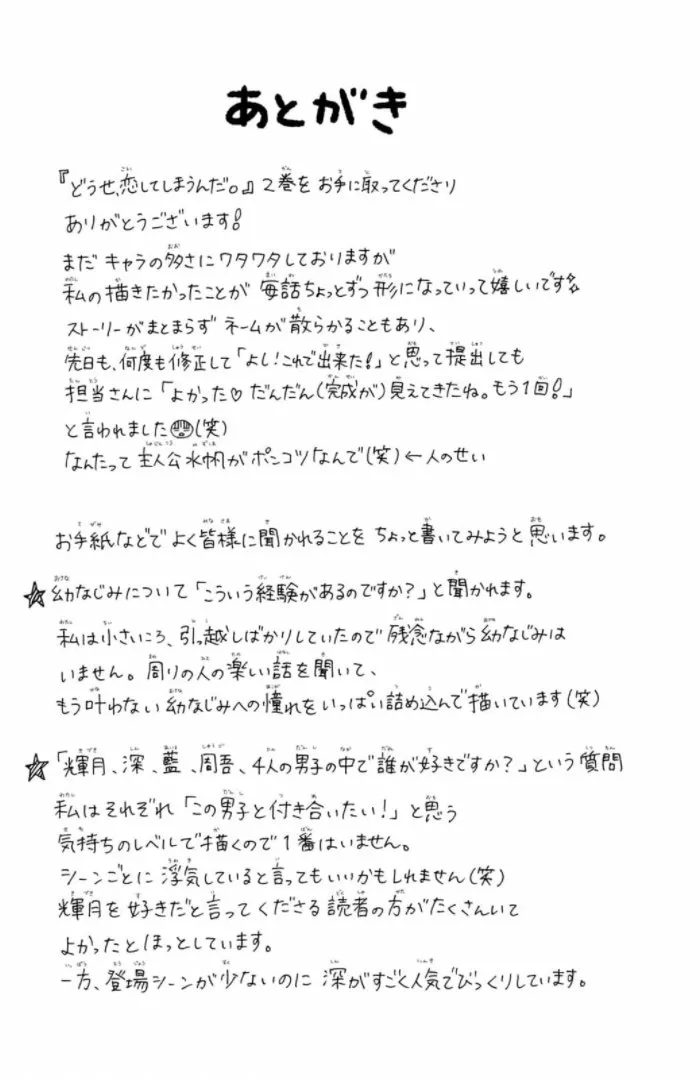 あとがき
『どうせ、恋してしまうんだ。』2巻をお手に取ってくださり
ありがとうございます!
まだキャラの多さにワタワタしておりますが
私の描きたかったことが毎話ちょっとずつ形になっていって嬉しいです
ストーリーがまとまらずネームが散らかることもあり、
先日も、何度も修正して「よし!これで出来た!」と思って提出しても
担当さんに「よかった♡だんだん(完成が)見えてきたね。もう1回!」
と言われました(笑)
なんたって主人公水帆がポンコツなんで(笑)←人のせい
お手紙などでよく皆様に聞かれることをちょっと書いてみようと思います。
☆幼なじみについて「こういう経験があるのですか?」と聞かれます。
私は小さいころ、引っ越しばかりしていたので残念ながら幼なじみは
いません。周りの人の楽しい話を聞いて、
もう叶わない幼なじみへの憧れをいっぱい詰め込んで描いています(笑)
☆「輝月、深、藍、周吾、4人の男子の中で誰が好きですか?」という質問
私はそれぞれ「この男子と付き合いたい!」と思う
気持ちのレベルで描くので1番はいません。
シーンごとに浮気していると言ってもいいかもしれません(笑)
輝月を好きだと言ってくださる読者の方がたくさんいて
よかったとほっとしています。
一方、登場シーンが少ないのに深がすごく人気でびっくりしています。